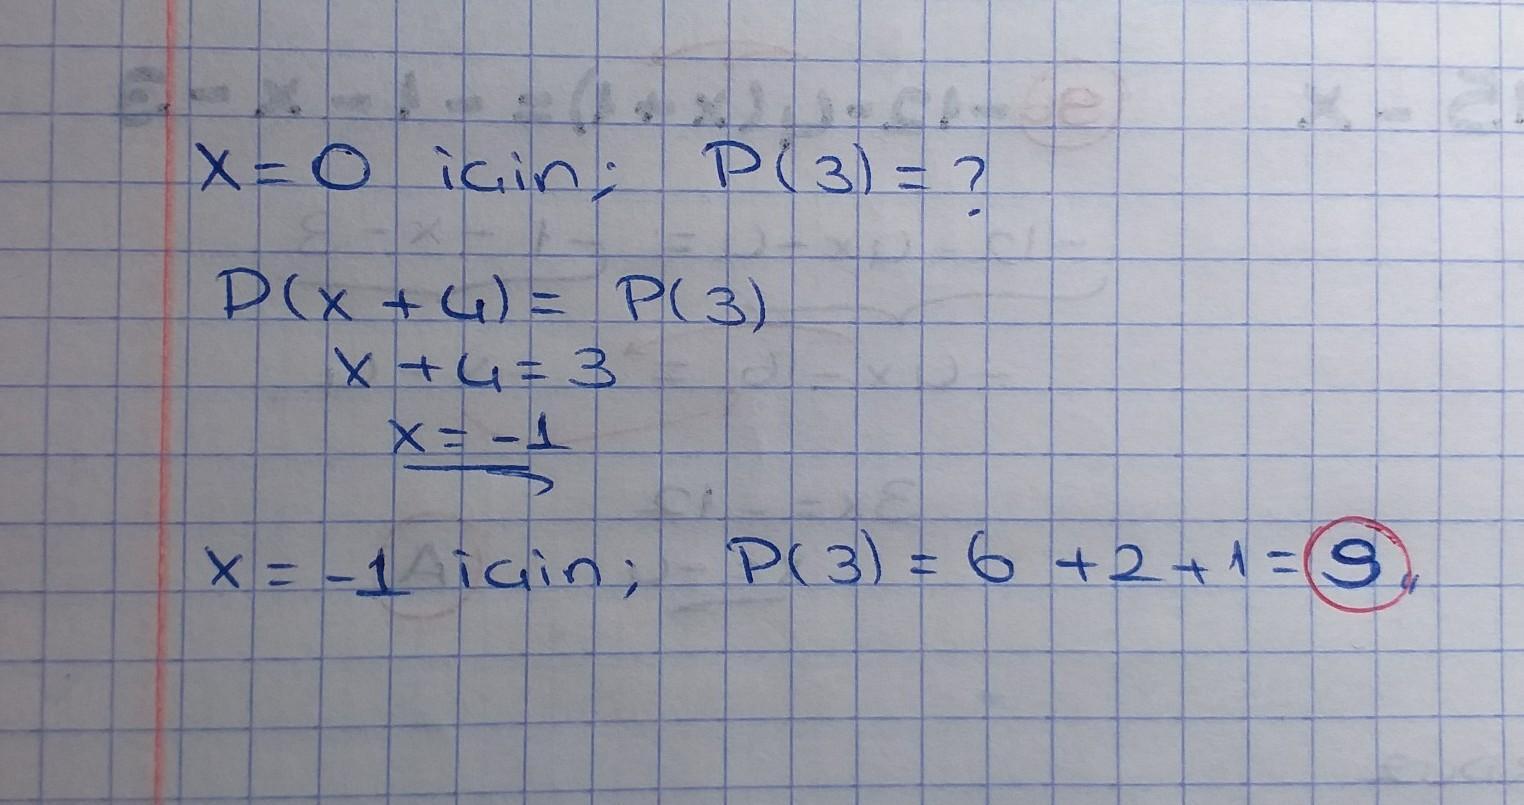 x = 0 için; P(3) = ?
P(x + 4) = P(3)
x + 4 = 3
x = -1
x = -1 için; P(3) = 6 + 2 + 1 = 9